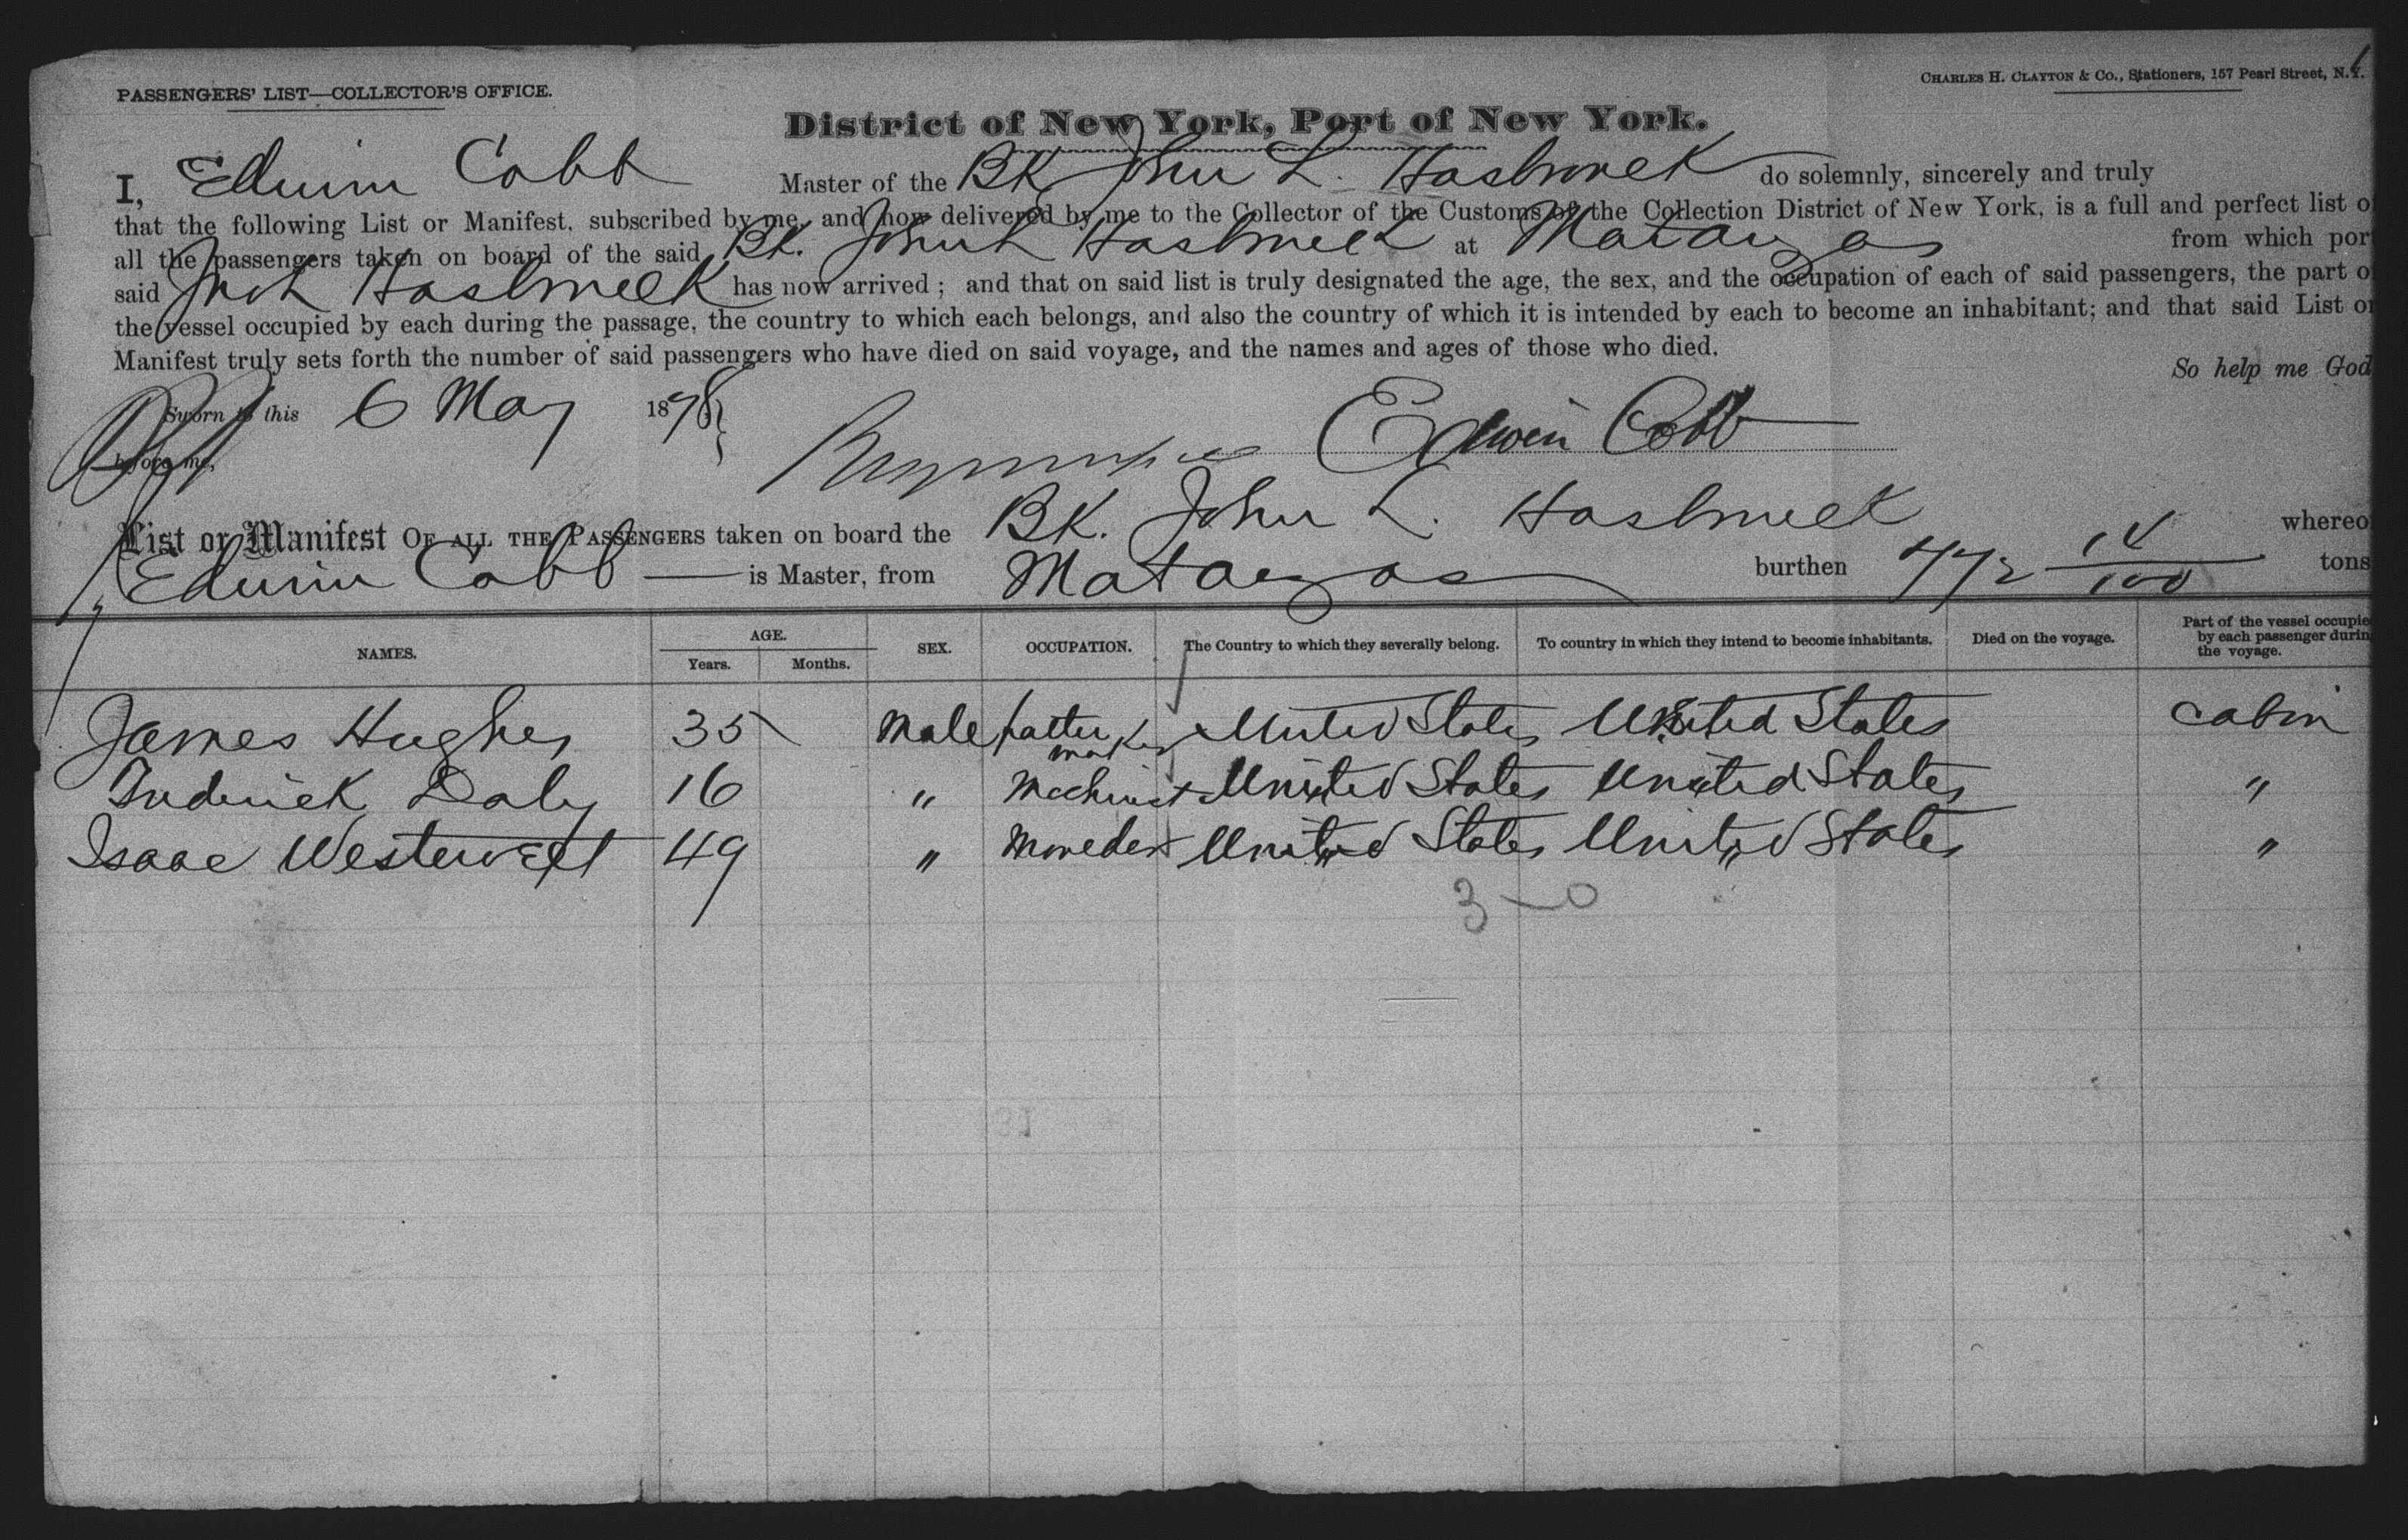 PASSENGERS' LIST—COLLECTOR'S OFFICE.
CHARLES H. CLAYTON & CO., Stationers, 157 Pearl Street, N.Y.
District of New York, Port of New York.
I, Edwin Cobb Master of the Bk John L. Hasbrouck do solemnly, sincerely and truly
that the following List or Manifest, subscribed by me, and now delivered by me to the Collector of the Customs of the Collection District of New York, is a full and perfect list o
all the passengers taken on board of the said Bk. John L Hasbrouck at Matanzas from which por
said Jno L Hasbrouck has now arrived; and that on said list is truly designated the age, the sex, and the occupation of each of said passengers, the part o
the vessel occupied by each during the passage, the country to which each belongs, and also the country of which it is intended by each to become an inhabitant; and that said List or
Manifest truly sets forth the number of said passengers who have died on said voyage, and the names and ages of those who died.
So help me God
Sworn to this 6 May 1878
Edwin Cobb
before me,
List or Manifest OF ALL THE PASSENGERS taken on board the Bk. John L. Hasbrouck whereo
Edwin Cobb is Master, from Matanzas burthen 772 14/100 tons
NAMES. AGE. Years. Months. SEX. OCCUPATION. The Country to which they severally belong. To country in which they intend to become inhabitants. Died on the voyage. Part of the vessel occupie by each passenger durin the voyage.
James Hughes 35 Male patter maker United States United States cabin
Frederick Daly 16 " Machinist United States United States "
Isaac Westervelt 49 " United States United States "
3-0